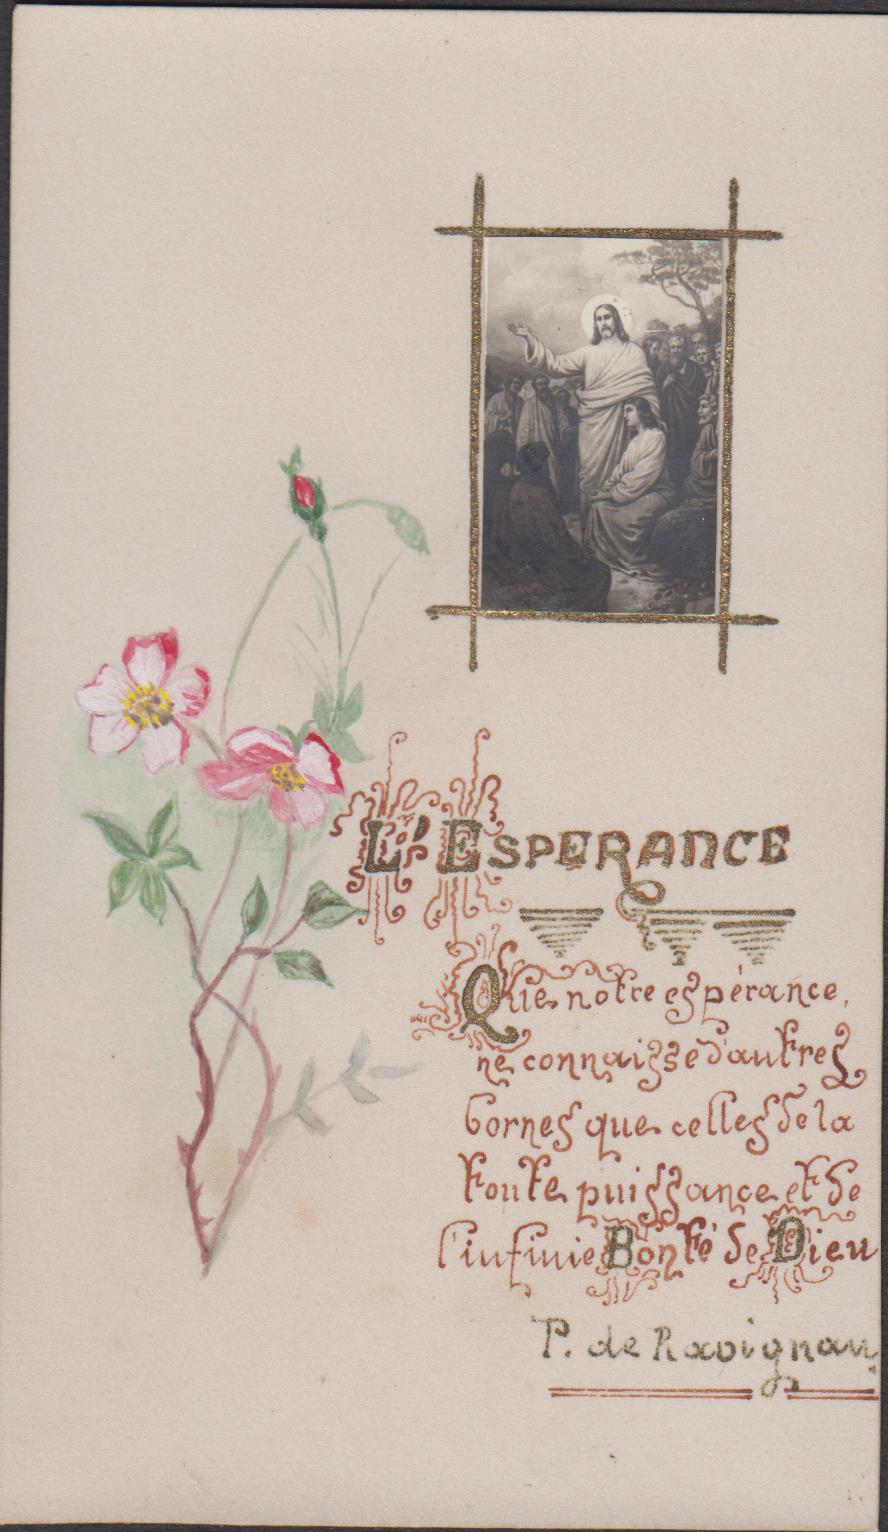 L'ESPERANCE
Que notre espérance,
ne connaisse d'autres
bornes que celles de la
toute puissance et de
l'infinie Bonté de Dieu
P. de Ravignan.